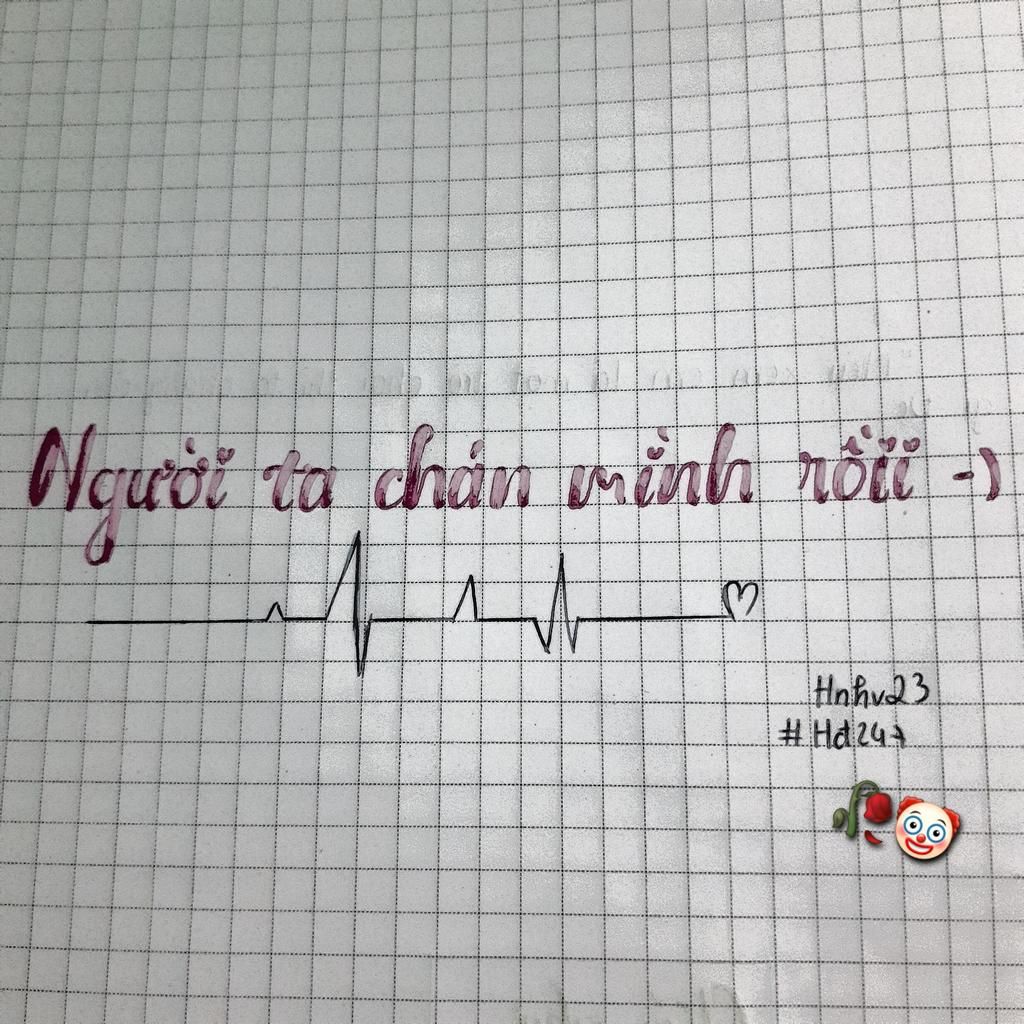 Người ta chán mình rồiii -)
Hnhv23
#Hd247